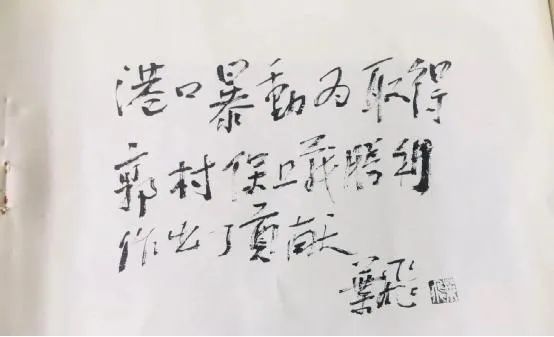 港口暴動为取得
郭村保卫战勝利
作出了貢献
葉飞